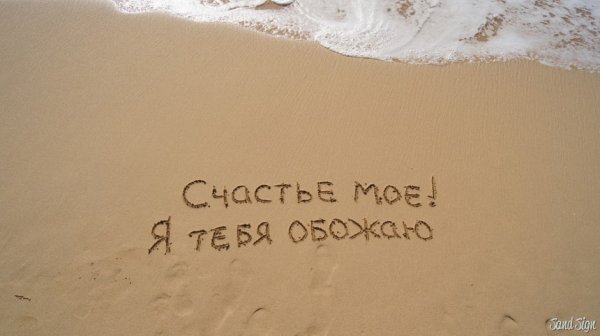 Счастье мое!
Я тебя обожаю
Sand Sign